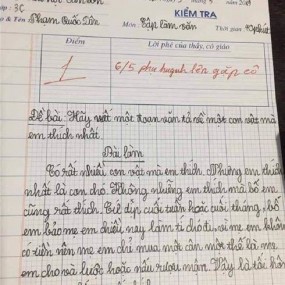 ớp: 3C
ọ & Tên Phạm Quốc Tân
KIỂM TRA
Môn: Tập làm văn
Thời gian: 40 phút
Điểm
Lời phê của thầy, cô giáo
1
6/5 phụ huynh lên gặp cô
Đề bài: Hãy viết một đoạn văn tả về một con vật mà
em thích nhất.
Bài làm
Có rất nhiều con vật mà em thích. Nhưng em thích
nhất là con chó. Không những em thích mà bố em
cũng rất thích. Cứ dịp cuối tuần hoặc cuối tháng, bố
em bảo mẹ em chiều nay làm tí cho tí, vì mẹ em không
có tiền nên mẹ em chỉ mua một cân mốt thế là mẹ
em cho và luộc hoặc nấu rượu mận. Vậy là tấc hôn